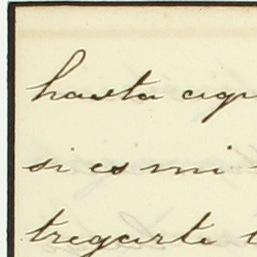 hasta aqu
si es mi
tregarte